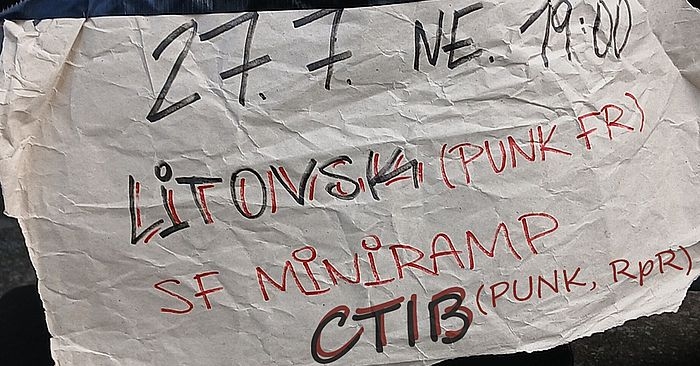 27. 7. NE. 19:00
LITOVSK (PUNK FR)
SF MINIRAMP
CTIB (PUNK, RpR)